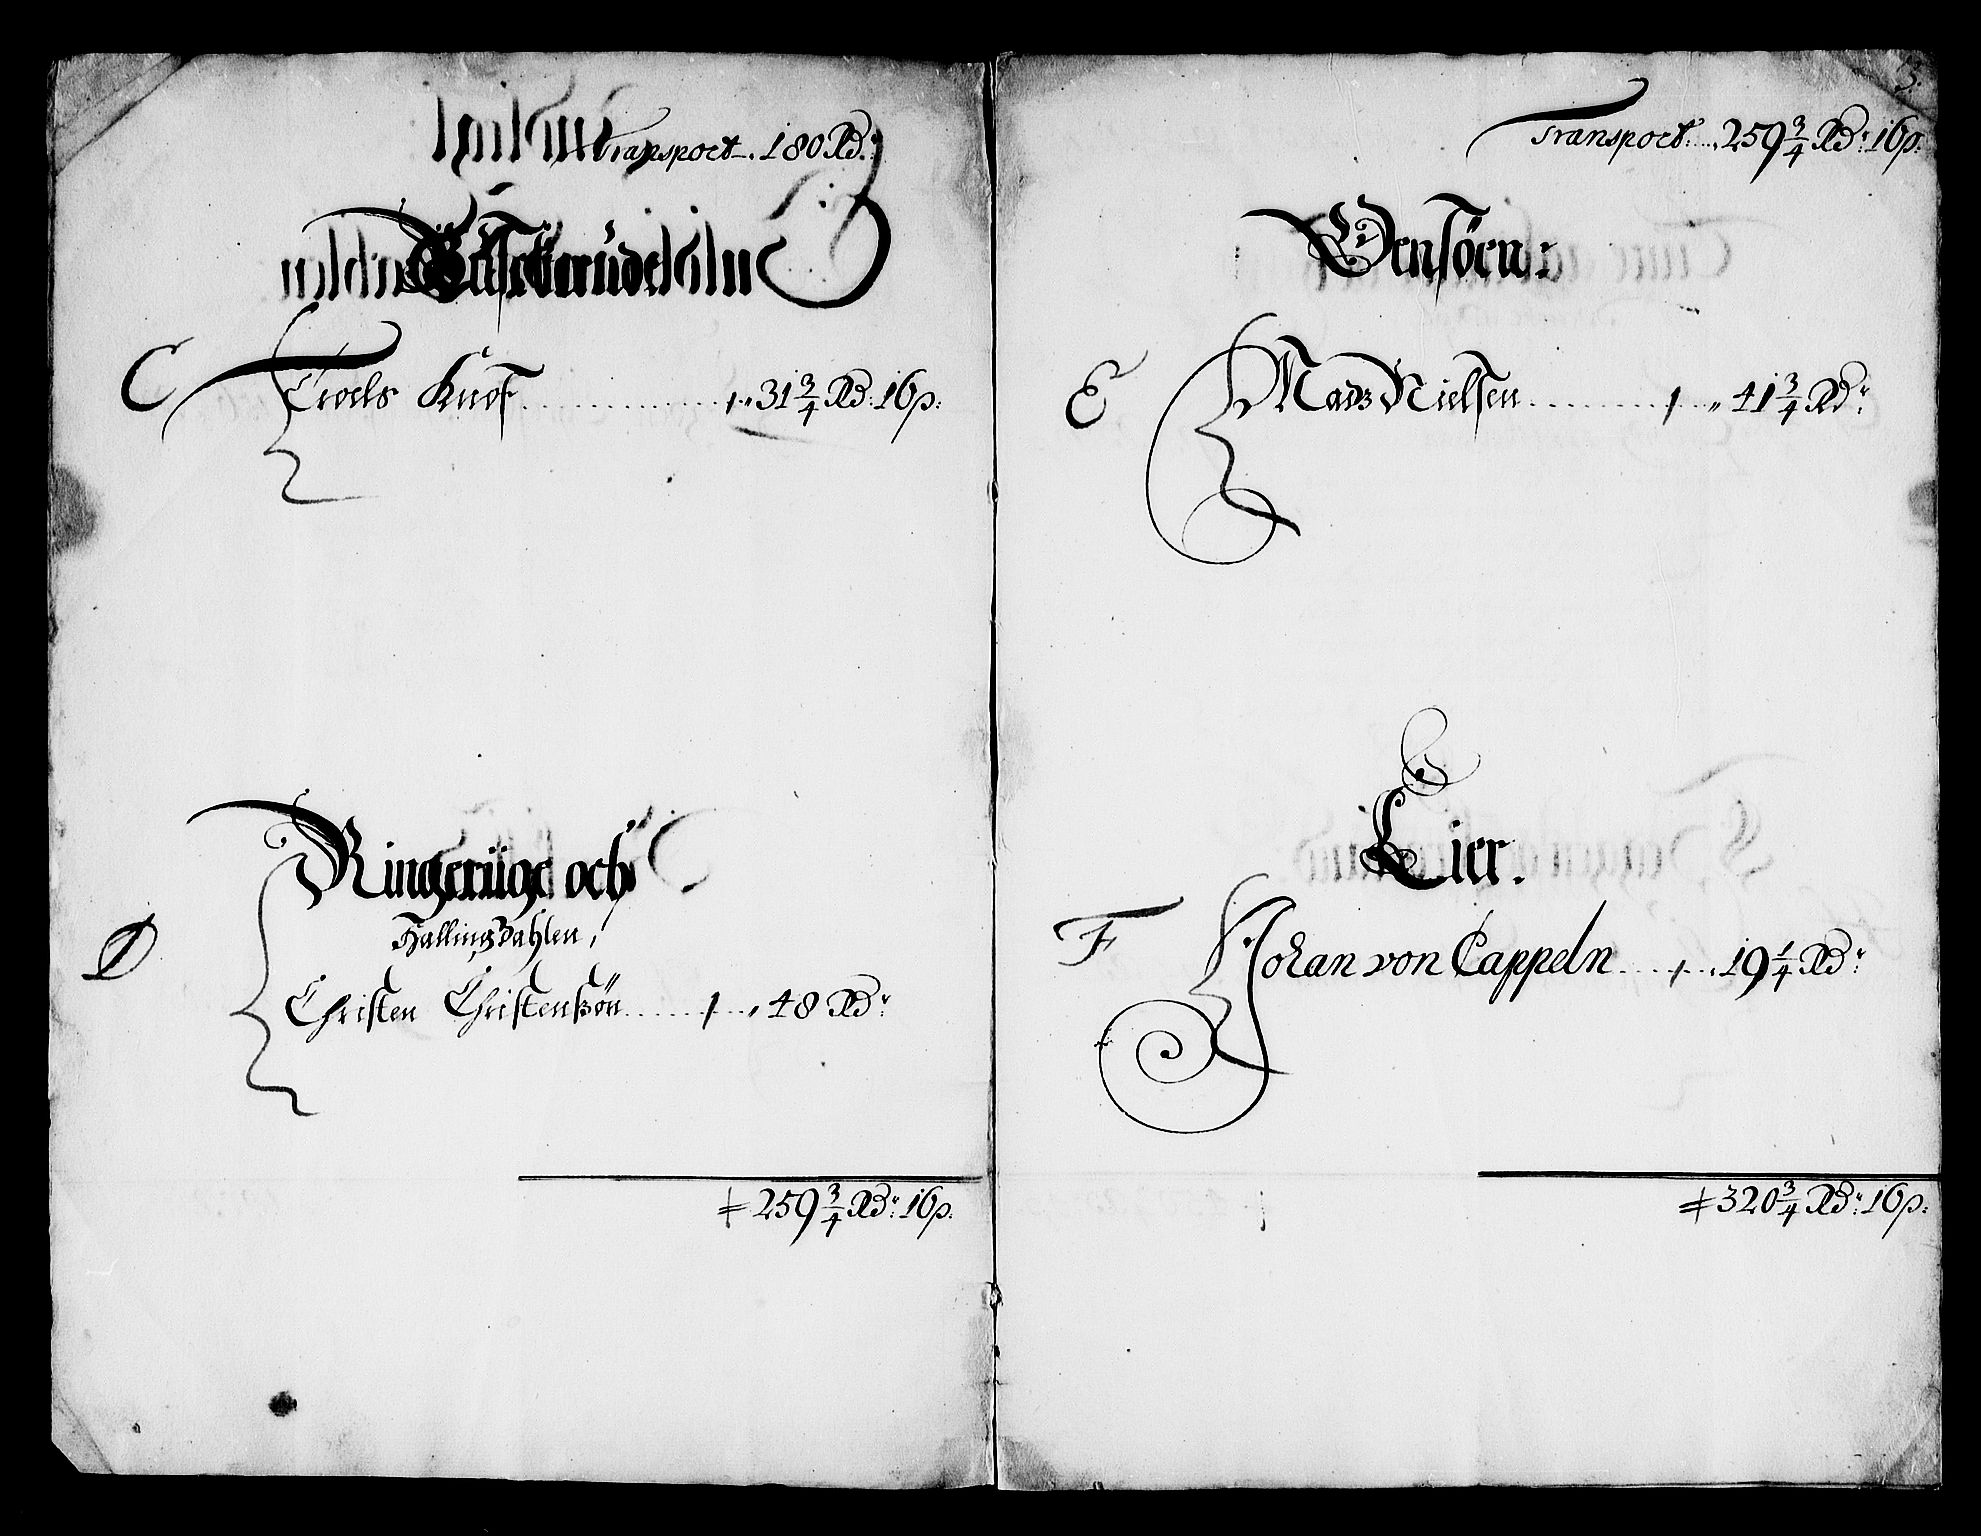 Transport . 180 Rdr
C Troels Knof . . . . . . . . . . 31 3/4 Rd: 16 ß:
Ringeriige och
Hallingdahlen,
D Christen Christenßøn . . . . . . 48 Rdr:
259 3/4 Rdr: 16 ß:
3.
Transport: . . . 259 3/4 Rdr: 16 ß:
E Madz Nielsen . . . . . . . . . 41 3/4 Rdr:
Lier.
F Johan von Cappeln . . . . . 19 1/4 Rdr:
320 3/4 Rdr: 16 ß: